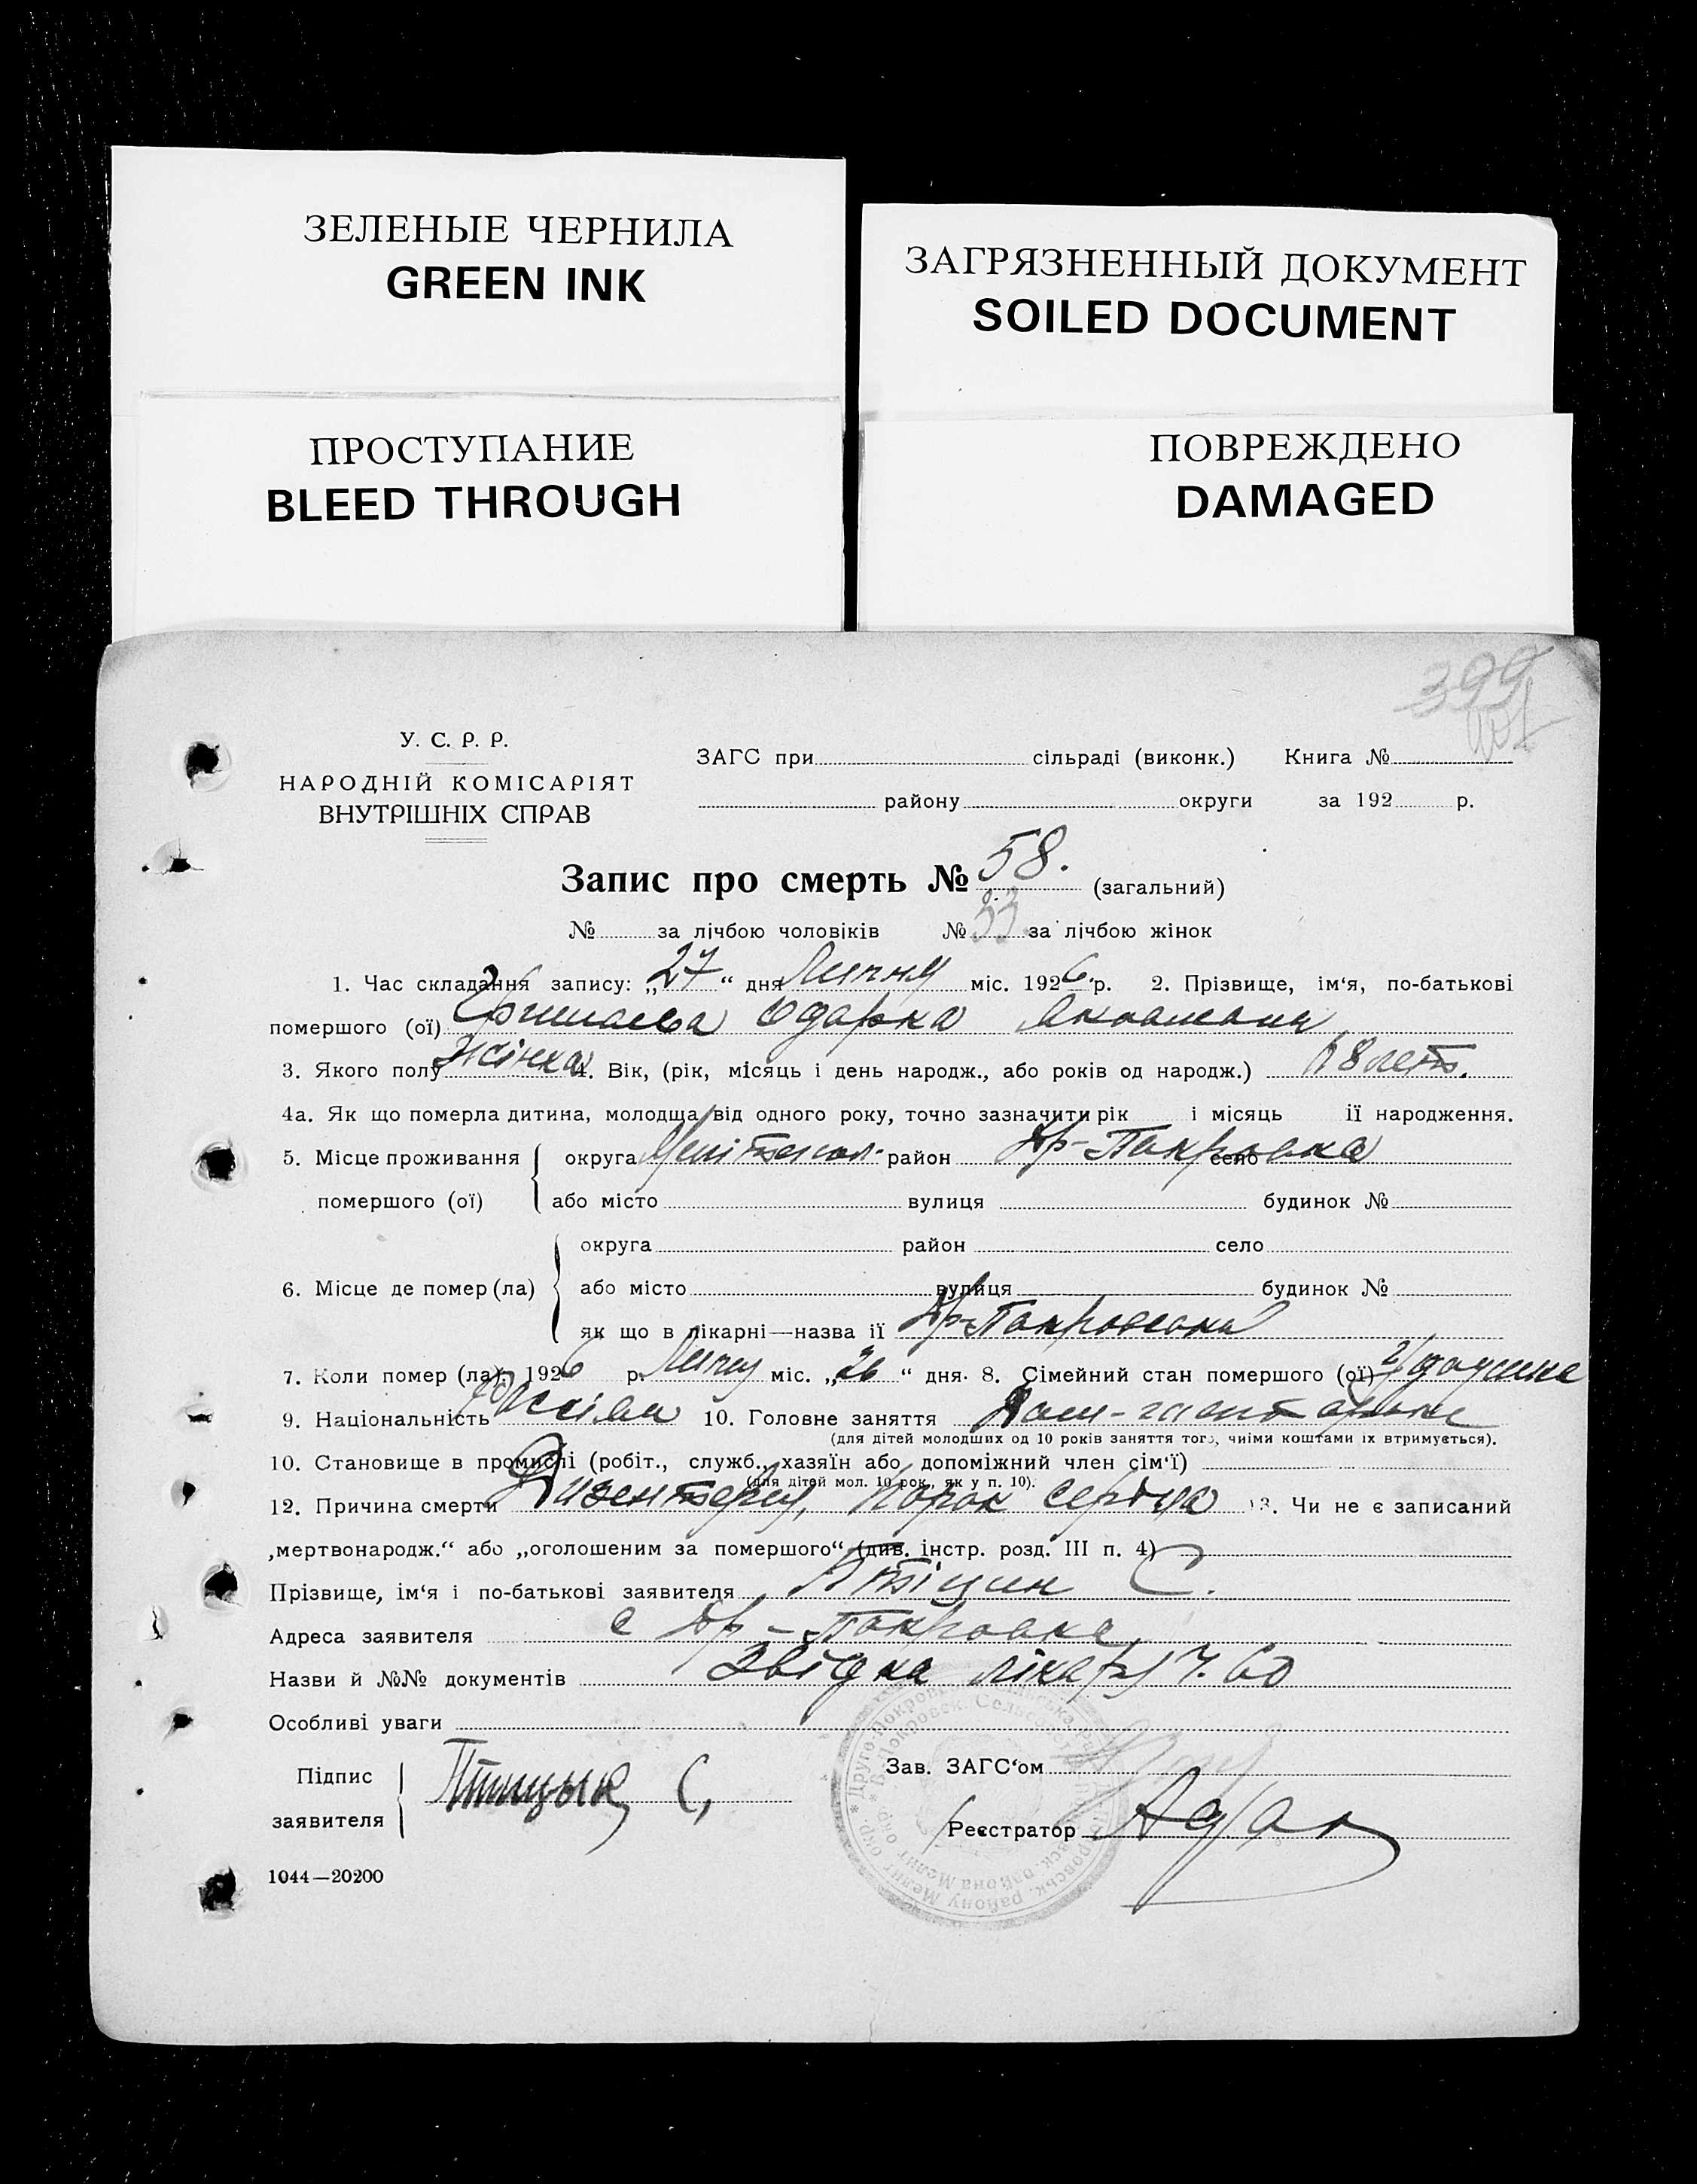 ЗЕЛЕНЫЕ ЧЕРНИЛА
GREEN INK
ЗАГРЯЗНЕННЫЙ ДОКУМЕНТ
SOILED DOCUMENT
ПРОСТУПАНИЕ
BLEED THROUGH
ПОВРЕЖДЕНО
DAMAGED
399
У. С. Р. Р.
НАРОДНІЙ КОМІСАРІЯТ
ВНУТРІШНІХ СПРАВ
ЗАГС при сільраді (виконк.) Книга №
району округи за 192 р.
Запис про смерть № 58. (загальний)
№ за лічбою чоловіків № 33 за лічбою жінок
1. Час складання запису: „27“ дня Липня міс. 1926 р. 2. Прізвище, ім‘я, по-батькові
помершого (ої) Одарка
3. Якого полу Жінка 4. Вік, (рік, місяць і день народж., або років од народж.) 68 лет.
4а. Як що померла дитина, молодща від одного року, точно зазначити рік і місяць її народження.
5. Місце проживання округа Мелітопол. район Др-Покровка село
помершого (ої) або місто вулиця будинок №
округа район село
6. Місце де помер (ла) або місто вулиця будинок №
як що в лікарні—назва її Др-Покровська
7. Коли помер (ла): 1926 р. Липня міс. „26“ дня. 8. Сімейний стан помершого (ої)
9. Національність 10. Головне заняття
(для дітей молодших од 10 років заняття того, чиїми коштами їх втримується).
10. Становище в промислі (робіт., служб., хазяїн або допоміжний член сім‘ї)
(для дітей мол. 10 рок., як у п. 10).
12. Причина смерти Дизентерия, Порок сердца 13. Чи не є записаний
„мертвонародж.“ або „оголошеним за помершого“ (див. інстр. розд. III п. 4)
Прізвище, ім‘я і по-батькові заявителя Птіцин С.
Адреса заявителя с Др-Покровка
Назви й №№ документів Звідка лікаря Ч. 60
Особливі уваги
Підпис
заявителя Птицын С,
Зав. ЗАГС‘ом
Реєстратор
1044—20200